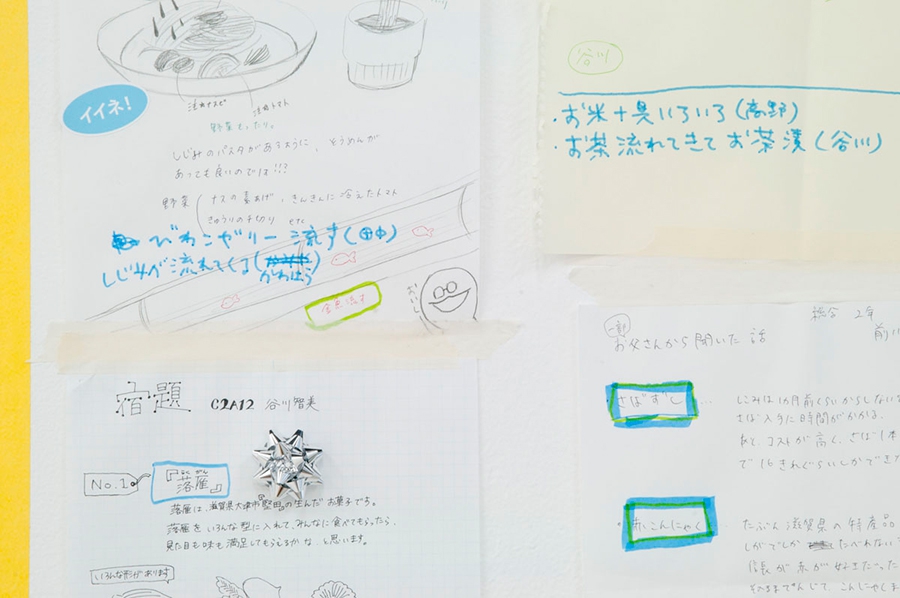 イイネ!
野菜もったり。
しじみのパスタがあるように、そうめんが
あっても良いのでは!!?
野菜 ナスの素あげ、きんきんに冷えたトマト
きゅうりの千切り etc
びわこゼリー流す(田中)
しじみが流れてくる(かわはら)
金魚流す
おいしー
宿題 C2A12 谷川智美
No.1 『落雁』
落雁は、滋賀県大津市『堅田』の生んだお菓子です。
落雁をいろんな型に入れて、みんなに食べてもらったら、
見た目も味も満足してもらえるかな、と思います。
いろんな形があります
谷川
・お米+具いろいろ(高野)
・お茶流れてきてお茶漬(谷川)
総合 2年
前川
一部
お父さんから聞いた話
さばずし…
さば入手に時間がかかる。
コストが高く、さば1本
で16きれぐらいしかでき
赤こんにゃく…
たぶん滋賀県の特産品
しがでしか たべれない
信長が赤が好きだった